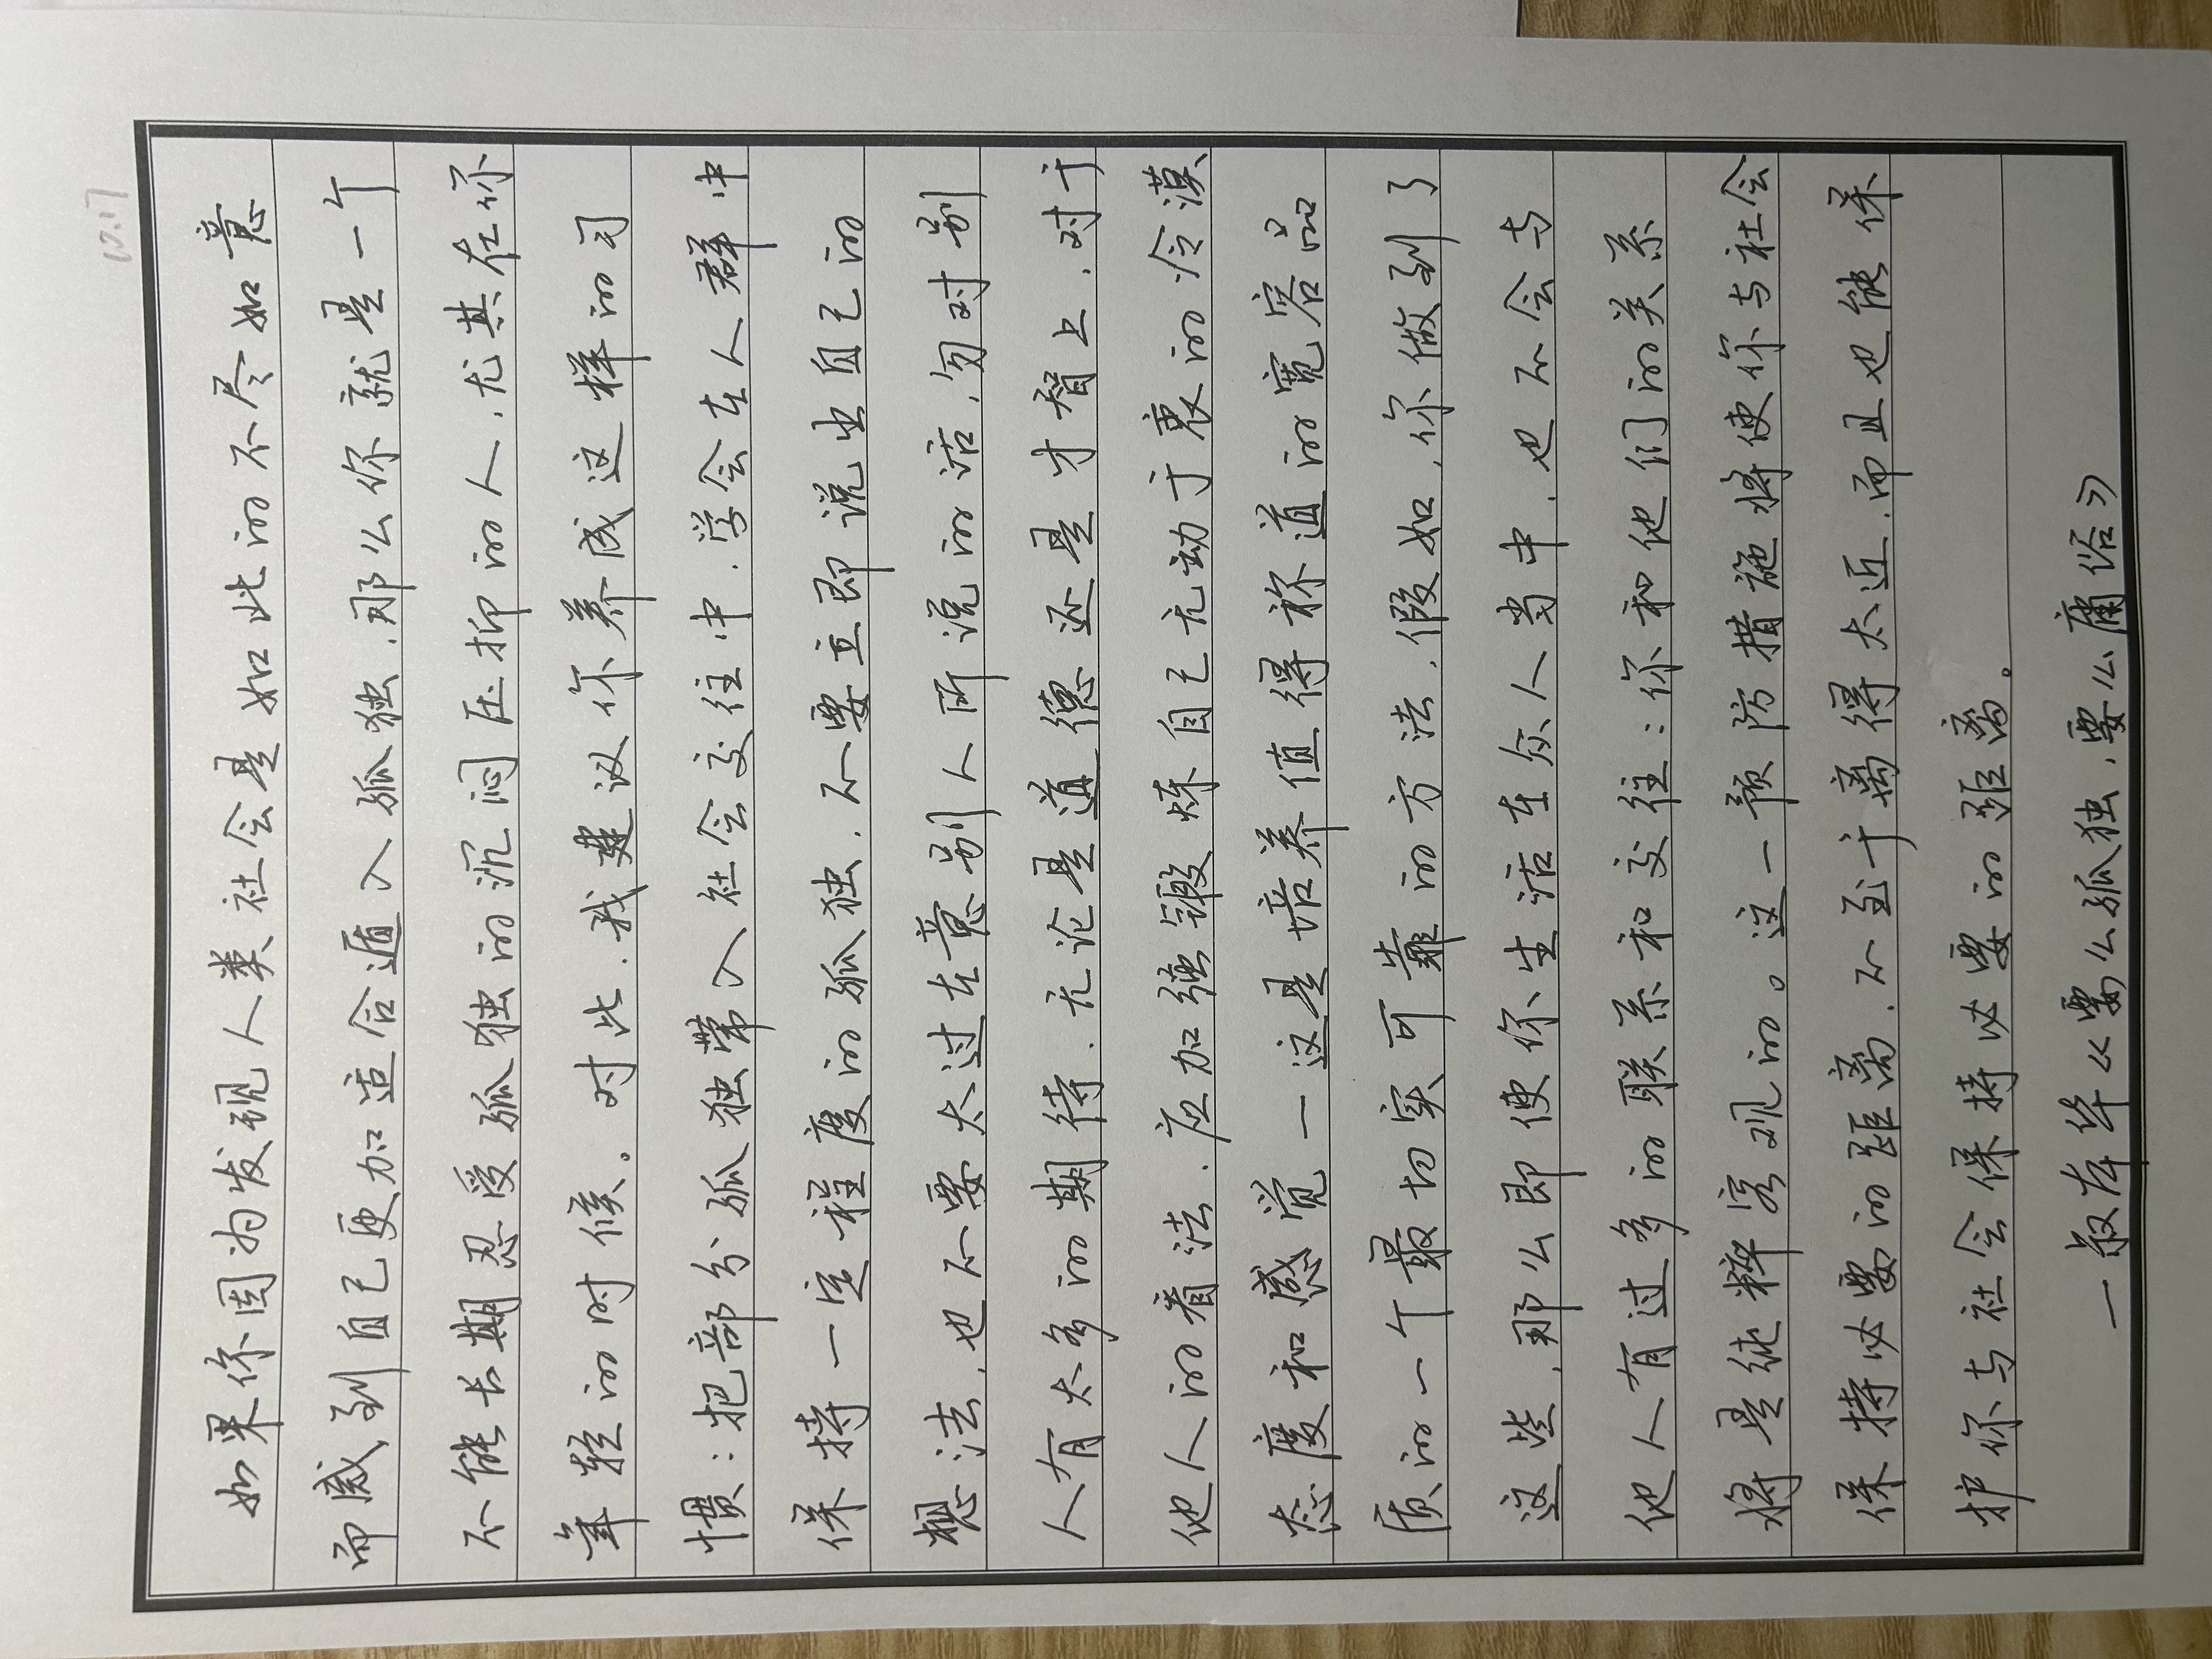 10.17
如果你因为发现人类社会是如此的不尽如意
而感到自己更加适合遁入孤独,那么你就是一个
不能长期忍受孤独的沉闷压抑的人,尤其在你
年轻的时候。对此,我建议你养成这样的习
惯:把部分孤独带入社会交往中,学会在人群中
保持一定程度的孤独,不要立即说出自己的
想法,也不要太过在意别人所说的话,勿对别
人有太多的期待,无论是道德还是才智上,对于
他人的看法,应加强锻炼自己无动于衷的冷漠
态度和感觉—这是培养值得称道的宽容品
质的一个最切实可靠的方法,假如,你做到了
这些,那么即使你生活在众人当中,也不会与
他人有过多的联系和交往:你和他们的关系
将是纯粹客观的。这一预防措施将使你与社会
保持必要的距离,不至于离得太近,而且也能保
护你与社会保持必要的距离。
—叔本华《要么孤独,要么庸俗》